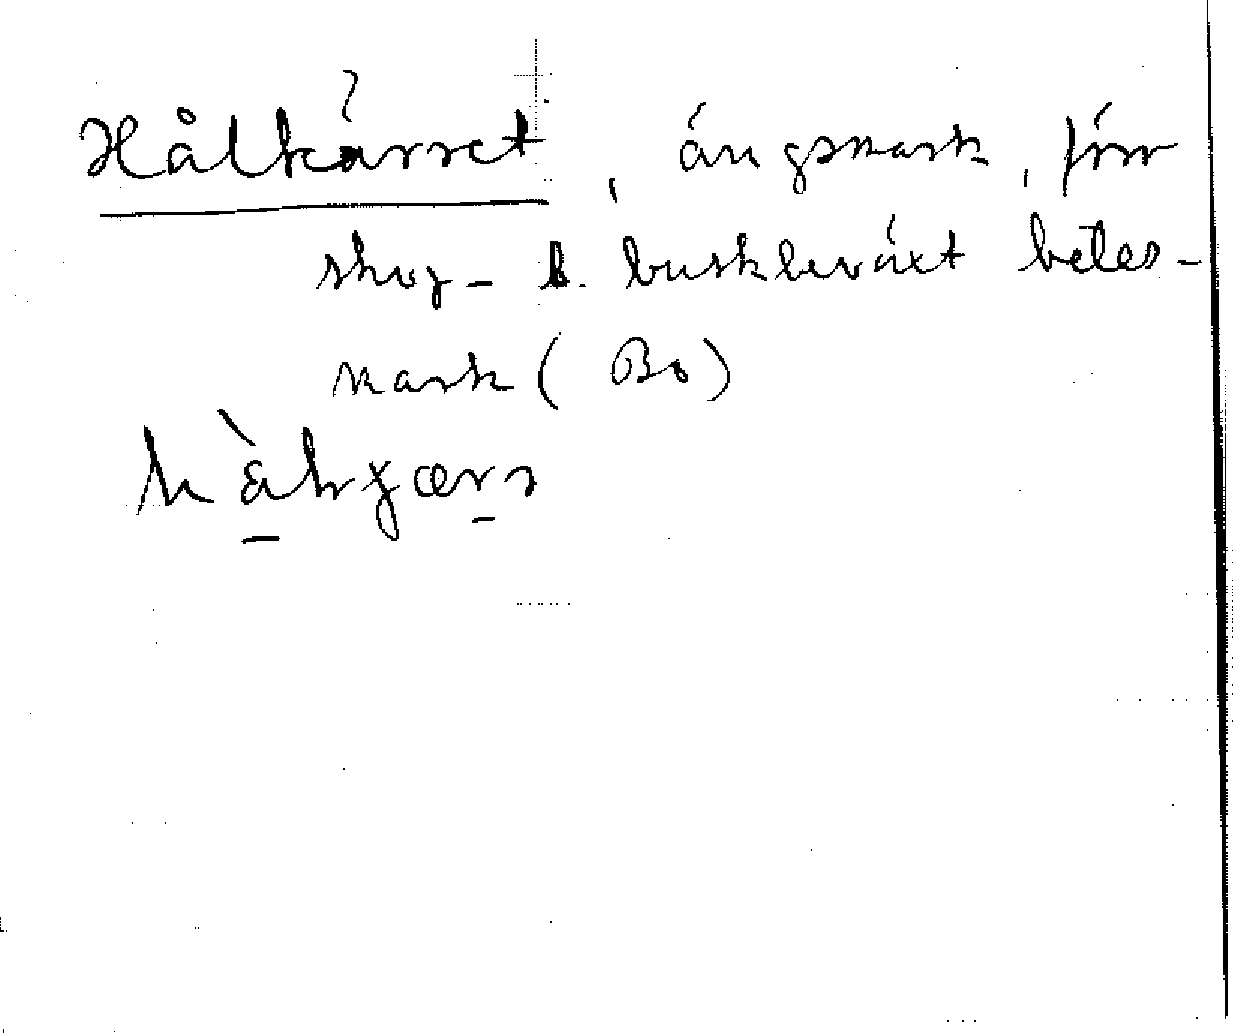 Hålkärret, ängsmark, förr
skog- b. buskbeväxt betes-
mark (Bo)